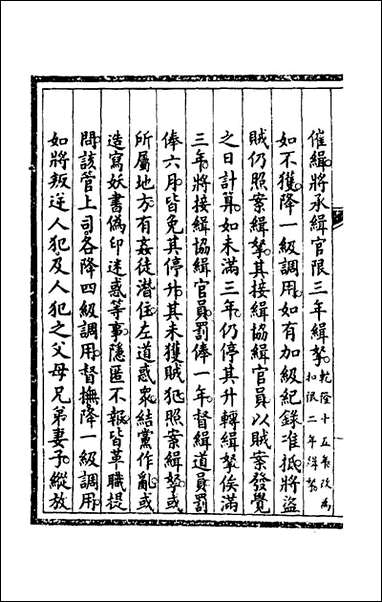 催緝將承緝官限三年緝拏乾隆十五年改爲扣限二年緝拏
如不獲降一級調用如有加級紀錄准抵將盜
賊仍照案緝拏其接緝協緝官員以賊案發覺
之日計算如未滿三年仍停其升轉緝拏俟滿
三年將接緝協緝官員罰俸一年督緝道員罰
俸六月皆免其停升其未獲賊犯照案緝拏或
所屬地方有姦徒潛住左道惑衆結黨作亂或
造寫妖書僞印迷惑等事隱匿不報皆革職提
問該管上司各降四級調用督撫降一級調用
如將叛逆人犯及人犯之父母兄弟妻子縱放